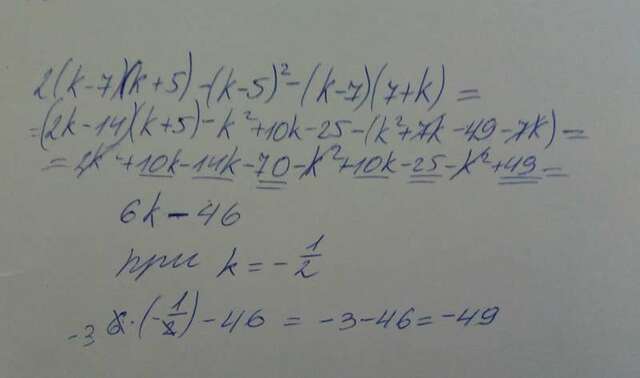 2(k-7)(k+5)-(k-5)²-(k-7)(7+k)=
=(2k-14)(k+5)-k²+10k-25-(k²+7k-49-7k)=
=2k²+10k-14k-70-k²+10k-25-k²+49=
6k-46
при k=-1/2
-3 6·(-1/2)-46=-3-46=-49